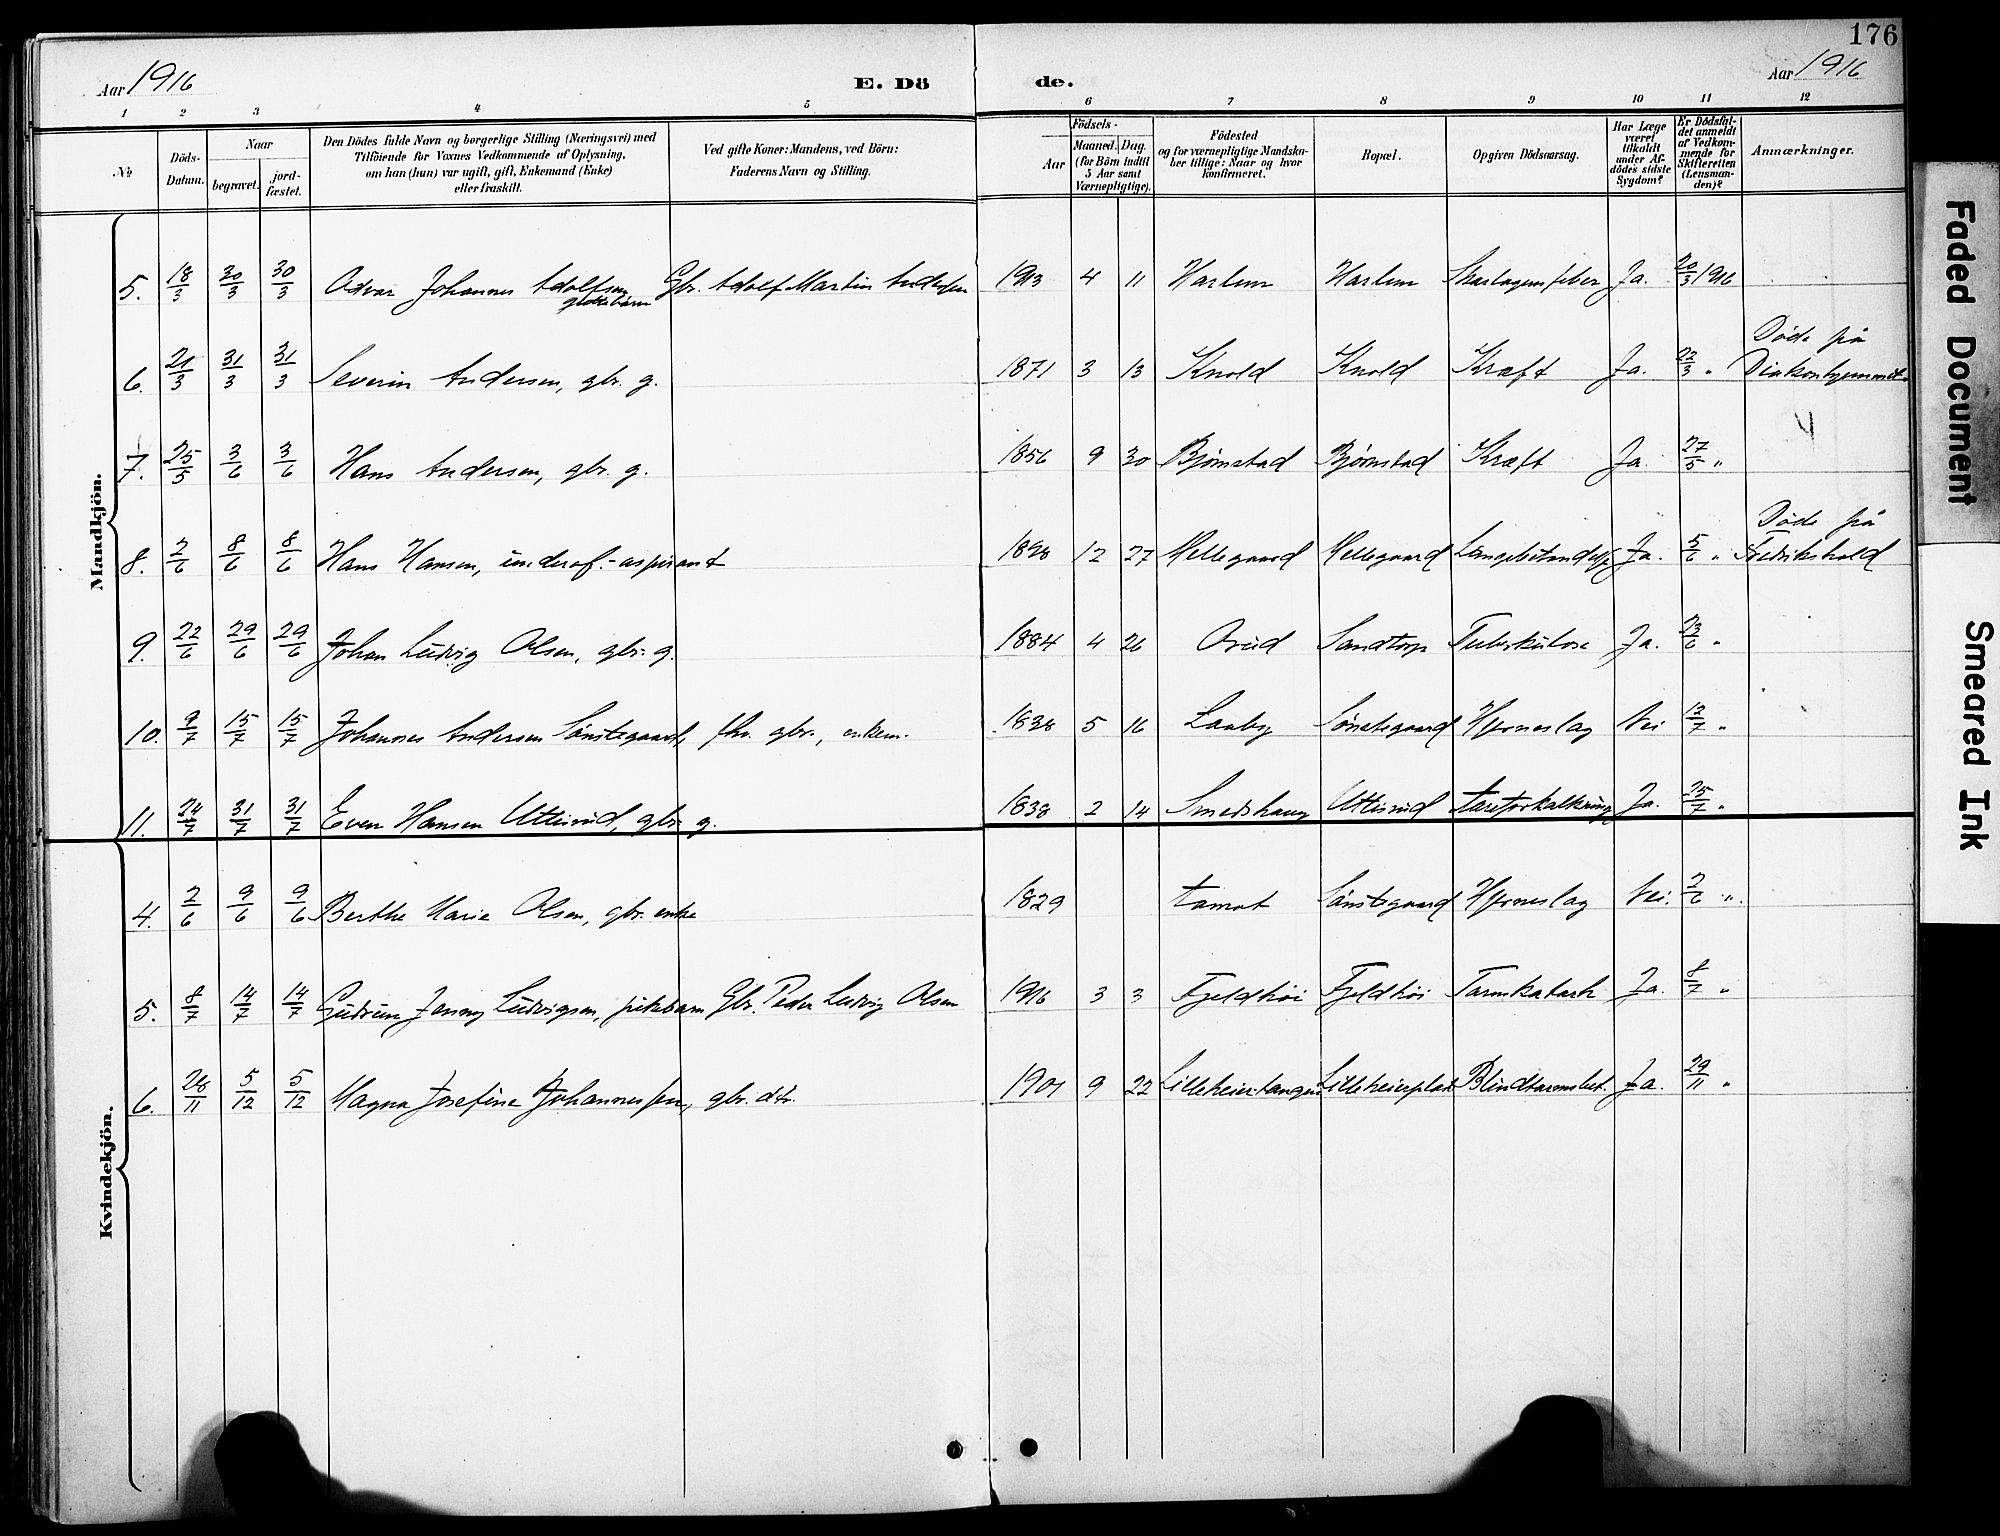 176
Aar 1916 E. Dö de. Aar 1916
1 2 3 4 5 6 7 8 9 10 11 12
No Döds-Datum. Naar begravet. jord-fæstet. Den Dödes fulde Navn og borgerlige Stilling (Næringsvei) med Tilföiende for Voxnes Vedkommende af Oplysning, om han (hun) var ugift, gift, Enkemand (Enke) eller fraskilt. Ved gifte Koner: Mandens, ved Börn: Faderens Navn og Stilling. Födsels- Aar Maaned. Dag. (for Börn indtil 5 Aar samt Værnepligtige). Födested og for værnepligtige Mandska-ber tillige: Naar og hvor konfirmeret. Bopæl. Opgiven Dödsaarsag. Har Læge været tilkaldt under Af-dödes sidste Sygdom? Er Dödsfal-det anmeldt af Vedkom-mende for Skifteretten (Lensman-den)? Anmærkninger.
Mandkjön.
5. 18/3 30/3 30/3 Odvar Johannes Adolfsen Gbr. Adolf Martin Andersen 1913 4 11 Harlem Harlem Skarlagensfeber Ja. 20/3 1916
Døde på
6. 21/3 31/3 31/3 Severin Andersen, gbr. g. 1871 3 13 Knold Knold Kræft Ja. 22/3 " Diakonhjemmet
7. 25/5 3/6 3/6 Hans Andersen, gbr. g. 1856 9 30 Bjørnstad Bjørnstad Kræft Ja. 27/5 "
Døde på
8. 2/6 8/6 8/6 Hans Hansen, underof.-aspirant 1898 12 27 Hellegaard Hellegaard Ja. 5/6 " Fredrikshald
9. 22/6 29/6 29/6 Johan Ludvig Olsen, gbr. g. 1884 4 26 Orud Sandtorp Tuberkulose Ja. 23/6 "
10. 9/7 15/7 15/7 Johannes Andersen Sønstegaard, fhv. gbr., enkem. 1838 5 16 Laaby Sønstegaard Hjerneslag Nei 12/7 "
11. 24/7 31/7 31/7 Even Hansen Uttisrud, gbr. g. 1838 2 14 Smedshaug Uttisrud Aareforkalkning Ja. 25/7 "
Kvindekjön.
4. 2/6 9/6 9/6 Berthe Marie Olsen, gbr. enke 1829 Aamot Sønstegaard Hjerneslag Nei. 2/6 ".
5. 8/7 14/7 14/7 Gudrun Jenny Ludvigsen, pikebarn Gbr. Peder Ludvig Olsen 1916 3 3 Fjeldhøi Fjeldhøi Tarmkatarh Ja. 8/7 "
6. 28/11 5/12 5/12 Magna Josefine Johannessen, gbr. dtr. 1901 9 22 Lilleheiertangen Lilleheierplads Blindtarmsbet. Ja. 29/11 "
Faded Document
Smeared Ink